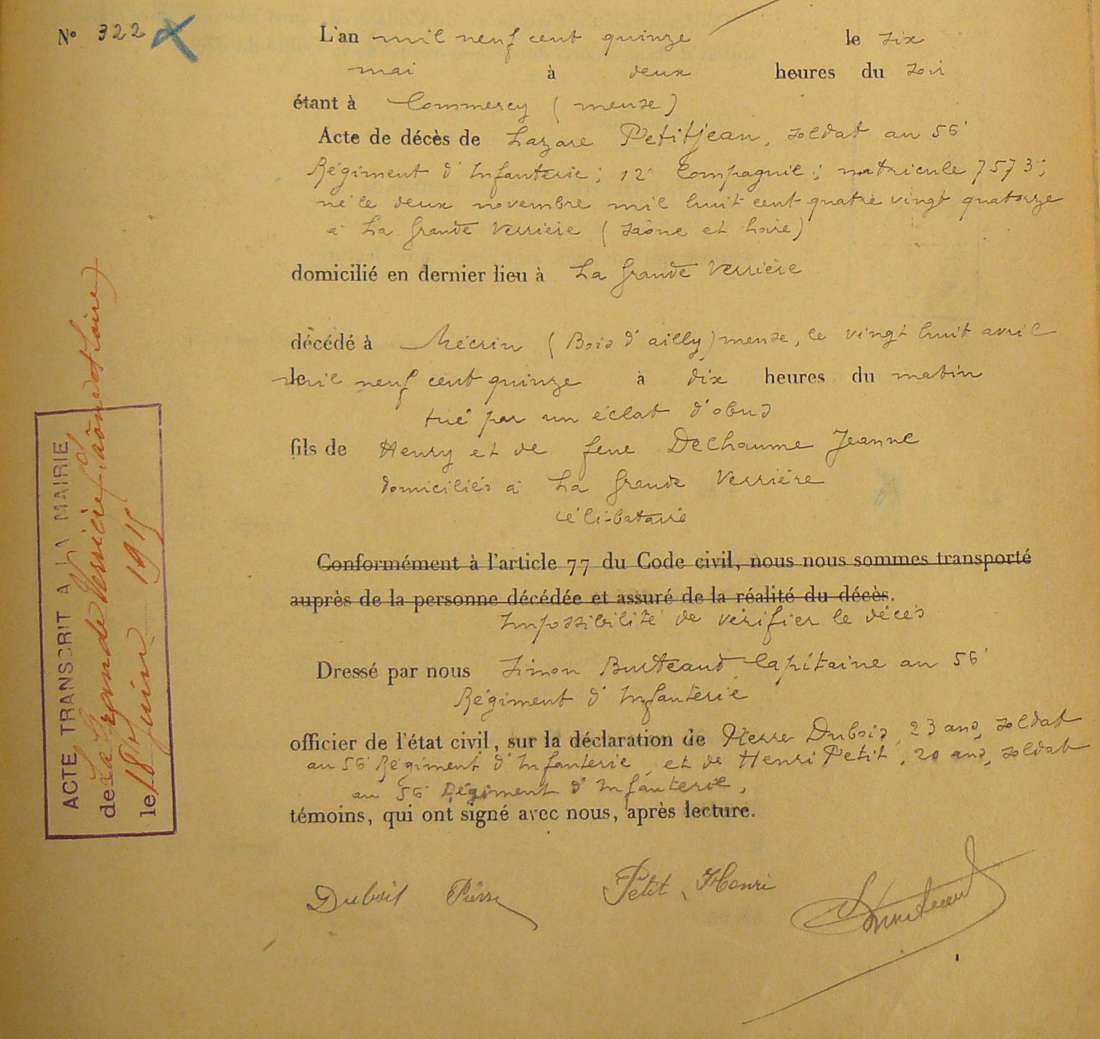 N° 322
L'an mil neuf cent quinze le six
mai à deux heures du soir
étant à Commercy (meuse)
Acte de décès de Lazare Petitjean, soldat au 56e
Régiment d'Infanterie; 12e Compagnie; matricule 7573;
né le deux novembre mil huit cent quatre vingt quatorze
à La Grande Verrière (Saône et Loire)
domicilié en dernier lieu à La Grande Verrière
décédé à Mécrin (Bois d'ailly) meuse, le vingt huit avril
le mil neuf cent quinze à dix heures du matin
tué par un éclat d'obus
fils de Henry et de feue Dechaume Jeanne
domiciliés à La Grande Verrière
célibataire
Conformément à l'article 77 du Code civil, nous nous sommes transporté
auprès de la personne décédée et assuré de la réalité du décès.
Impossibilité de vérifier le décès
Dressé par nous Simon Burteaud Capitaine au 56e
Régiment d'Infanterie
officier de l'état civil, sur la déclaration de Pierre Dubois, 23 ans, soldat
au 56e Régiment d'Infanterie, et de Henri Petit, 20 ans, soldat
au 56e Régiment d'Infanterie,
témoins, qui ont signé avec nous, après lecture.
Dubois Pierre Petit Henri
ACTE TRANSCRIT A LA MAIRIE
de La Grande Verrière (Saône et Loire)
le 18 Juin 1915